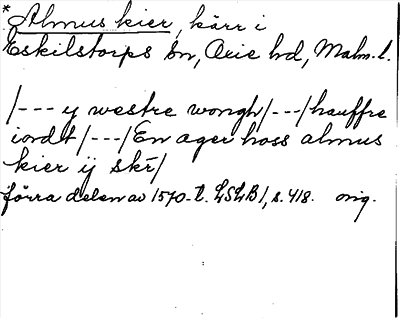 * Almus kier, kärr i
Eskilstorps sn, Oxie hd, Malm. l.
/--- y westre wongh/---/hauffre
iordt/---/En ager hoss almus
kier ij skr̄/
förra delen av 1570-t. LSLB 1, s. 418. orig.